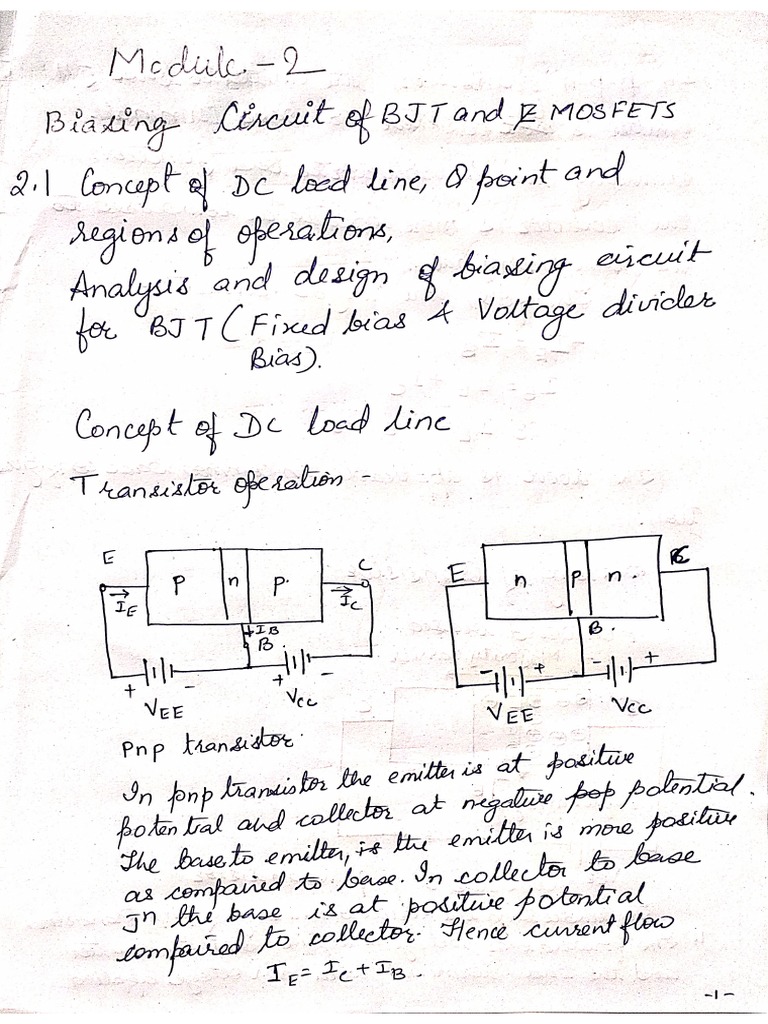 Module - 2
Biasing Circuit of BJT and E MOSFETS
2.1 Concept of DC load line, Q point and
regions of operations,
Analysis and design of biasing circuit
for BJT (Fixed bias & Voltage divider
Bias).
Concept of DC load line
Transistor operation -
E p n p C
IE IB IC
B
+ - + -
VEE VCC
E n p n C
B
- + - +
VEE VCC
Pnp transistor
In pnp transistor the emitter is at positive
potential and collector at negative pop potential.
The base to emitter, is the emitter is more positive
as compaired to base. In collector to base
Jn the base is at positive potential
compaired to collector. Hence current flow
IE = IC + IB.
-1-